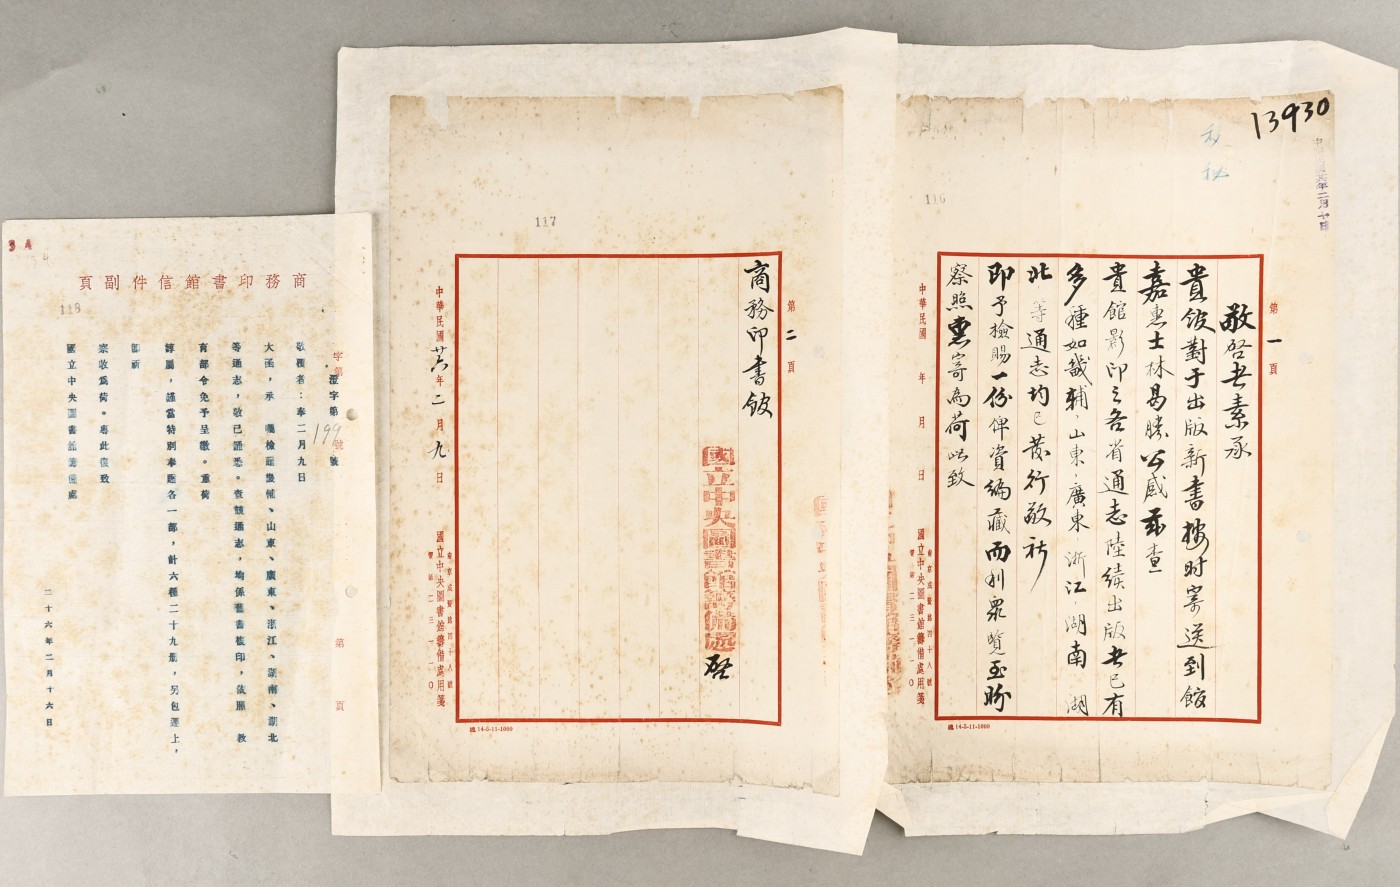 13930
秘
秘
116
第一頁
敬啓者素承
貴館對于出版新書按时寄送到館
嘉惠士林曷勝公感茲查
貴館影印之各省通志陸續出版者已有
多種如畿輔、山東、廣東、浙江、湖南、湖
北等通志均已發行敬祈
即予檢賜一份俾資編藏而利衆覽至盼
察照惠寄為荷此致
中華民國 年 月 日
國立中央圖書館籌備處用箋
南京成賢街四十八號
電話二三一一〇
總14-5-11-1000
117
第二頁
商務印書館
國立中央圖書館籌備處
啓
中華民國廿六年二月九日
國立中央圖書館籌備處用箋
南京成賢街四十八號
電話二三一一〇
總14-5-11-1000
商務印書館信件副頁
118
字第 號
第 頁
澄字第199號
敬覆者：奉二月九日
大函，承 囑檢贈畿輔、山東、廣東、浙江、湖南、湖北
等通志，敬已誦悉。查該通志，均係舊書複印，依照 教
育部令免予呈繳。重荷
諄屬，謹當特別奉贈各一部，計六種二十九册，另包運上，
即祈
察收爲荷。專此復致
國立中央圖書館籌備處
二十六年二月十六日